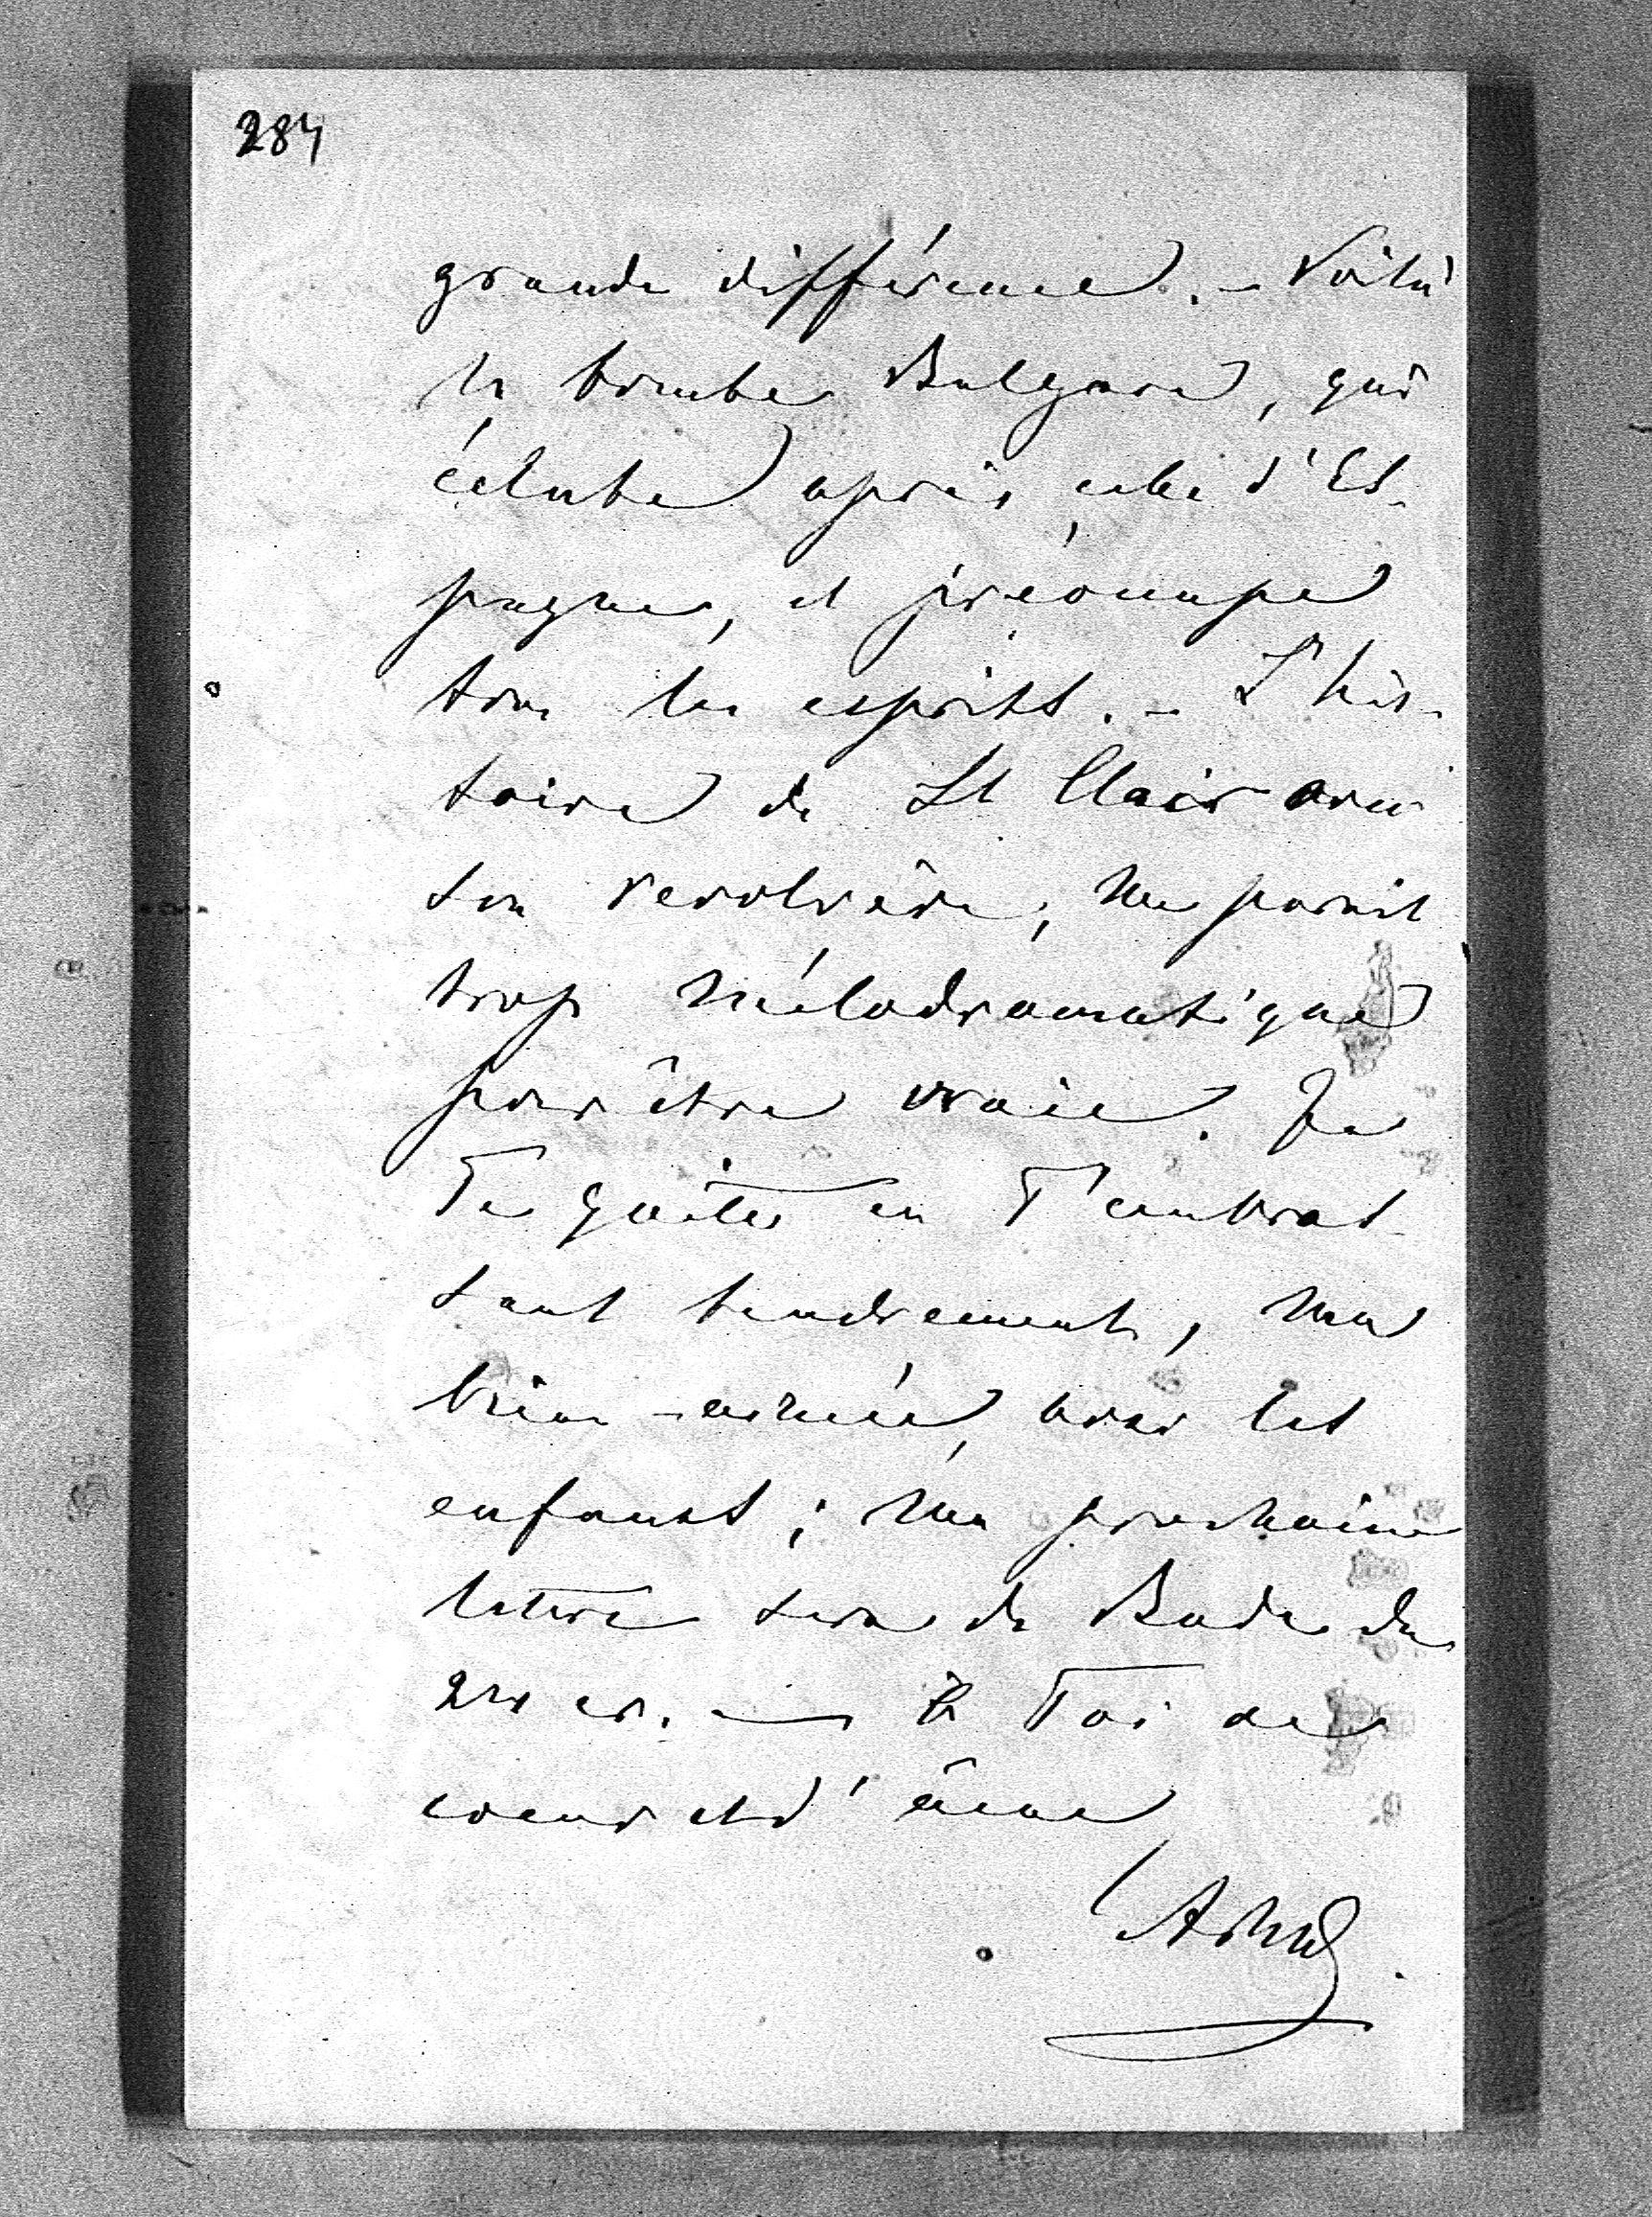 284
grande différence. – Voilà
la bombe Bulgare, qui
éclate après celle d'Es-
pagne, et préoccupe
tous les esprits. – L'his-
toire de St Clair avec
son revolvère, me parait
trop mélodramatique
pour être vraie. Je
Te quitte en T'embras-
sant tendrement, ma
bien-aimée, avec les
enfants; ma prochaine
lettre sera de Bade du
cr. — à Toi de
coeur et d'âme